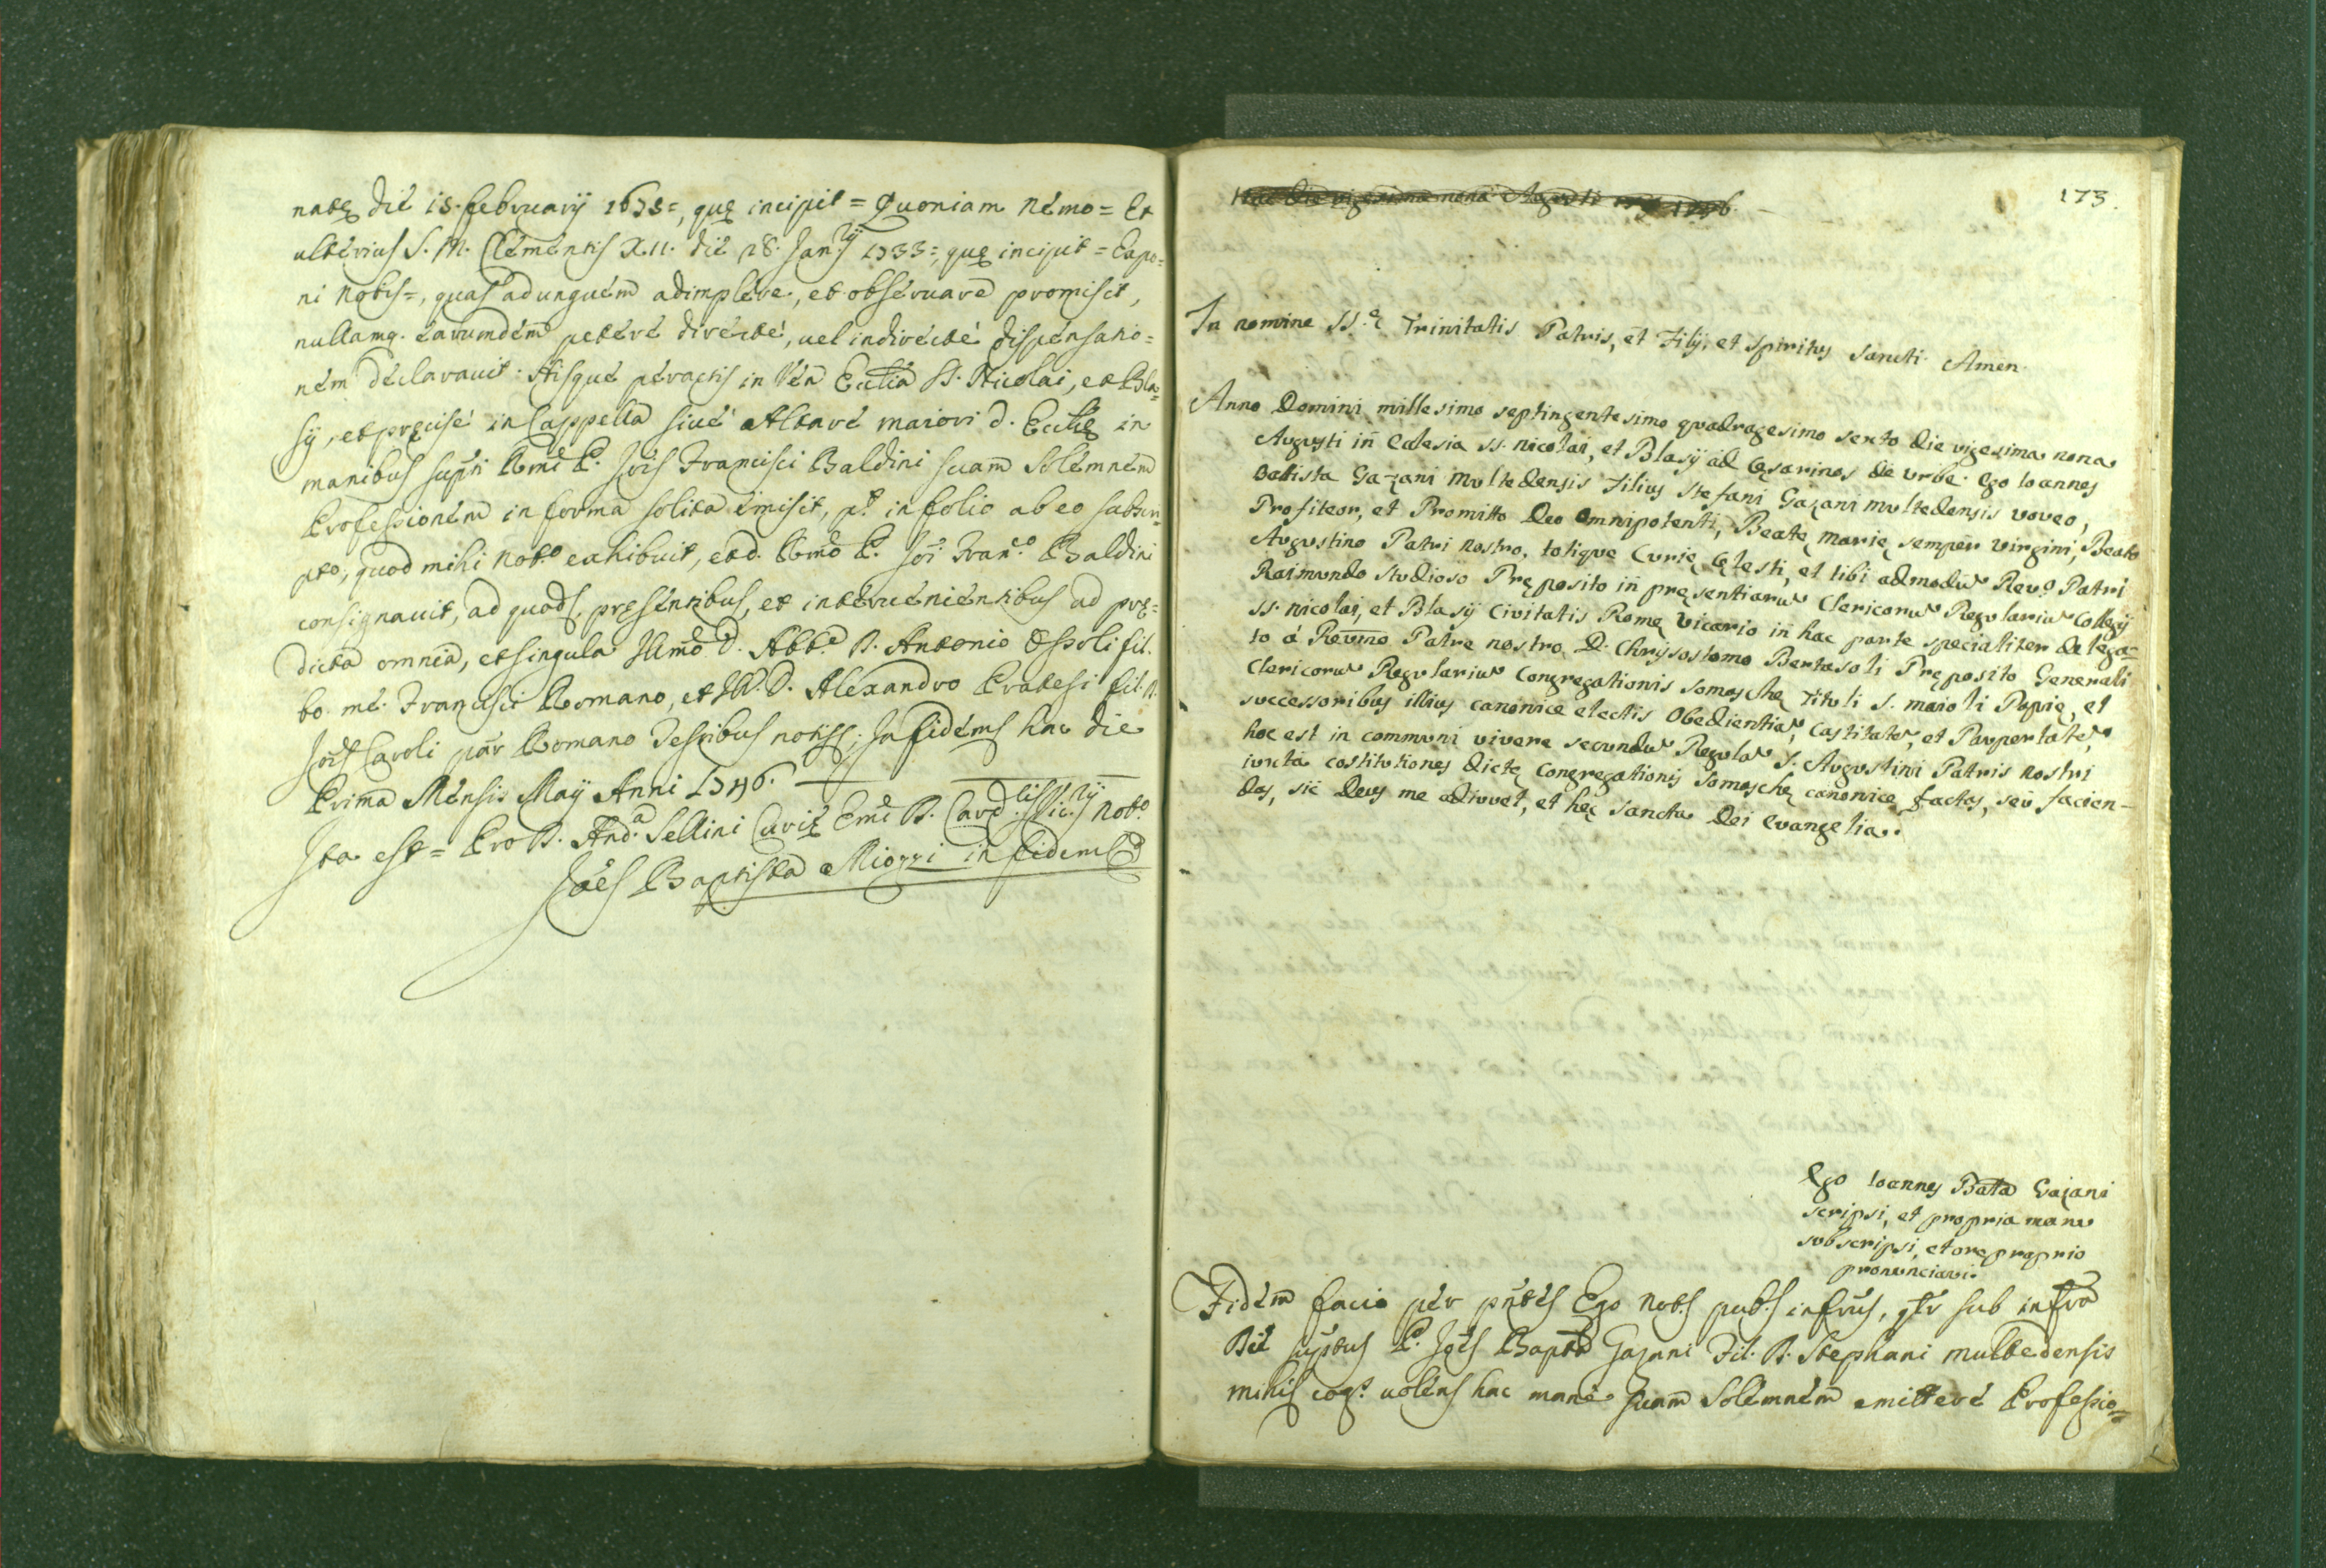 natę die 15. februarij 1675=, quę incipit = Quoniam nemo = Et
ulterius S. M. Clementis XII. die 28. Jan.rij 1733=, quę incipit = Expo=
ni nobis=, quas ad unguem adimplere, et observare promisit,
nullamq. earumdem petere directe, vel indirecte dispensatio=
nem declaravit. Hisque peractis in Ven Ecclia SS. Nicolai, et Bla=
sij, et pręcise in Cappella sive Altare maiori d. Eccłię in
manibus supri Rmi P. Jois Francisci Baldini suam solemnem
Professionem in forma solita emisit, pt in folio ab eo subscri=
pto, quod mihi Not.o exhibuit, et d. Rmo P. Joi Fran.co Baldini
consignavit, ad quod pręsentibus, et intervenientibus ad prę=
dicta omnia, et singula Illmo D. Abb.e D. Antonio fil.
bo. me. Francisci Romano, et D. Alexandro Pratesi fil. D.
Jois Caroli par Romano Testibus In fidem hac die
Prima Mensis Maij Anni 1746.
Ita est = Pro D. And.a Sellini Curię Emi D. Card. Vic.rij Not.o
Joes Baptista Miozzi in fidem
173.
Hac die vigesima nona Agusti 1746.
In nomine SS.ę Trinitatis Patris, et Filij, et Spiritus Sancti Amen.
Anno Domini millesimo septingentesimo quadragesimo sexto die vigesima nona
Augusti in Eclesia SS. Nicolai, et Blasij ad Cęsarinos de Urbe. Ego Ioannes
Battista Gazani Multedensis Filius Stefani Gazani multedensis voveo,
Profiteor, et Promitto Deo Omnipotenti, Beatę Marię semper Virgini, Beato
Augustino Patri nostro, totique Curię cęlesti, et tibi admodu Rev.o Patri
Raimundo Studioso Pręposito in pręsentiaru Clericoru Regulariu Collegij
SS. Nicolai, et Blasij Civitatis Romę Vicario in hac parte specialiter delega=
to á Revmo Patre nostro D. Chrysostomo Bertasoli Pręposito Generali
Clericoru Regulariu Congregationis Somaschę Tituli S. Maioli Papię, et
successoribus illius canonice electis Obedientia, Castitate, et Paupertate,
hoc est in communi vivere secundu Regula S. Augustini Patris nostri
iuxta costitutiones dictę Congregationis Somaschę canonice factas, seù facien-
das, sic Deus me adiuvet, et hęc Sancta Dei Evangelia.
Ego Ioannes Batta Gazani
scripsi, et propria manu
subscripsi, et ore proprio
pronunciavi.
Fidem facio per pntes Ego Not.s pub.s infrus, qtr sub infra
Die suptus P. Joes Baptta Gazani Fil. D. Stephani multedensis
mihi cog.s volens hac mane suam Solemnem emittere Professio=